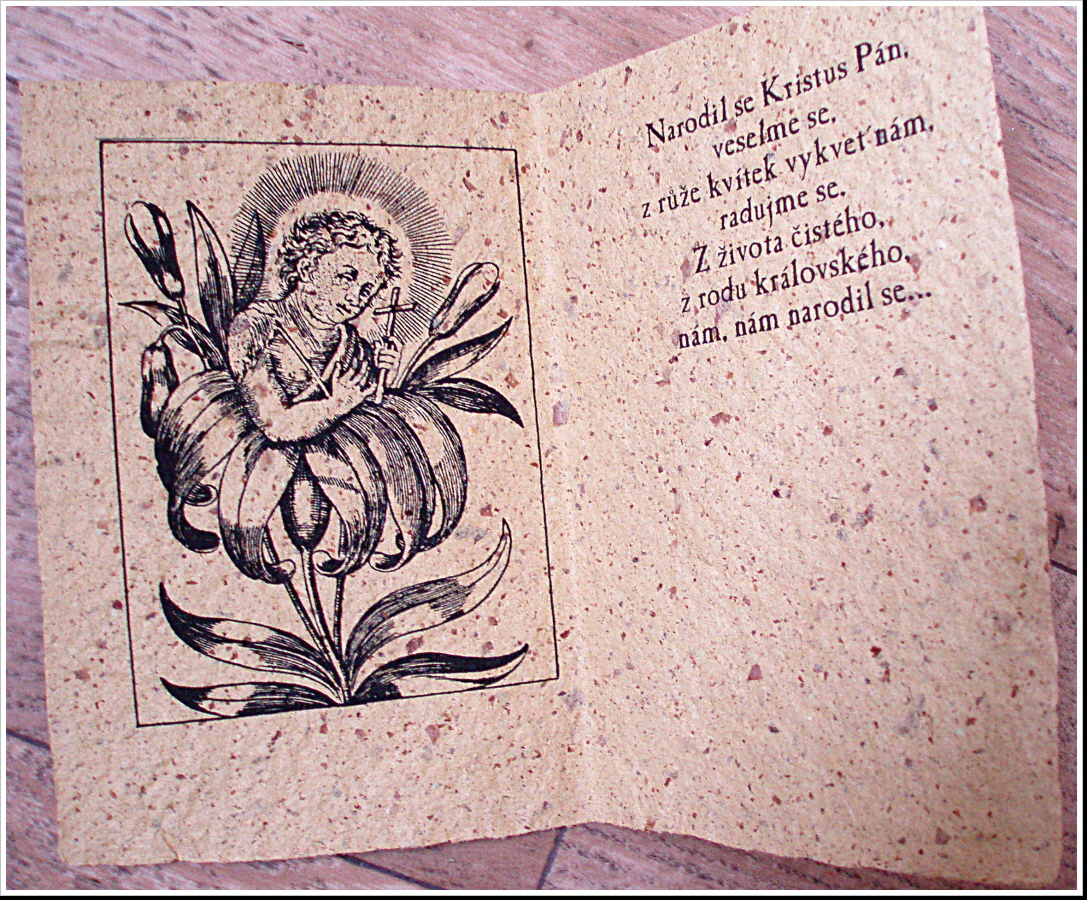 Narodil se Kristus Pán,
veselme se,
z růže kvítek vykvet nám,
radujme se.
Z života čistého,
z rodu královského,
nám, nám narodil se...